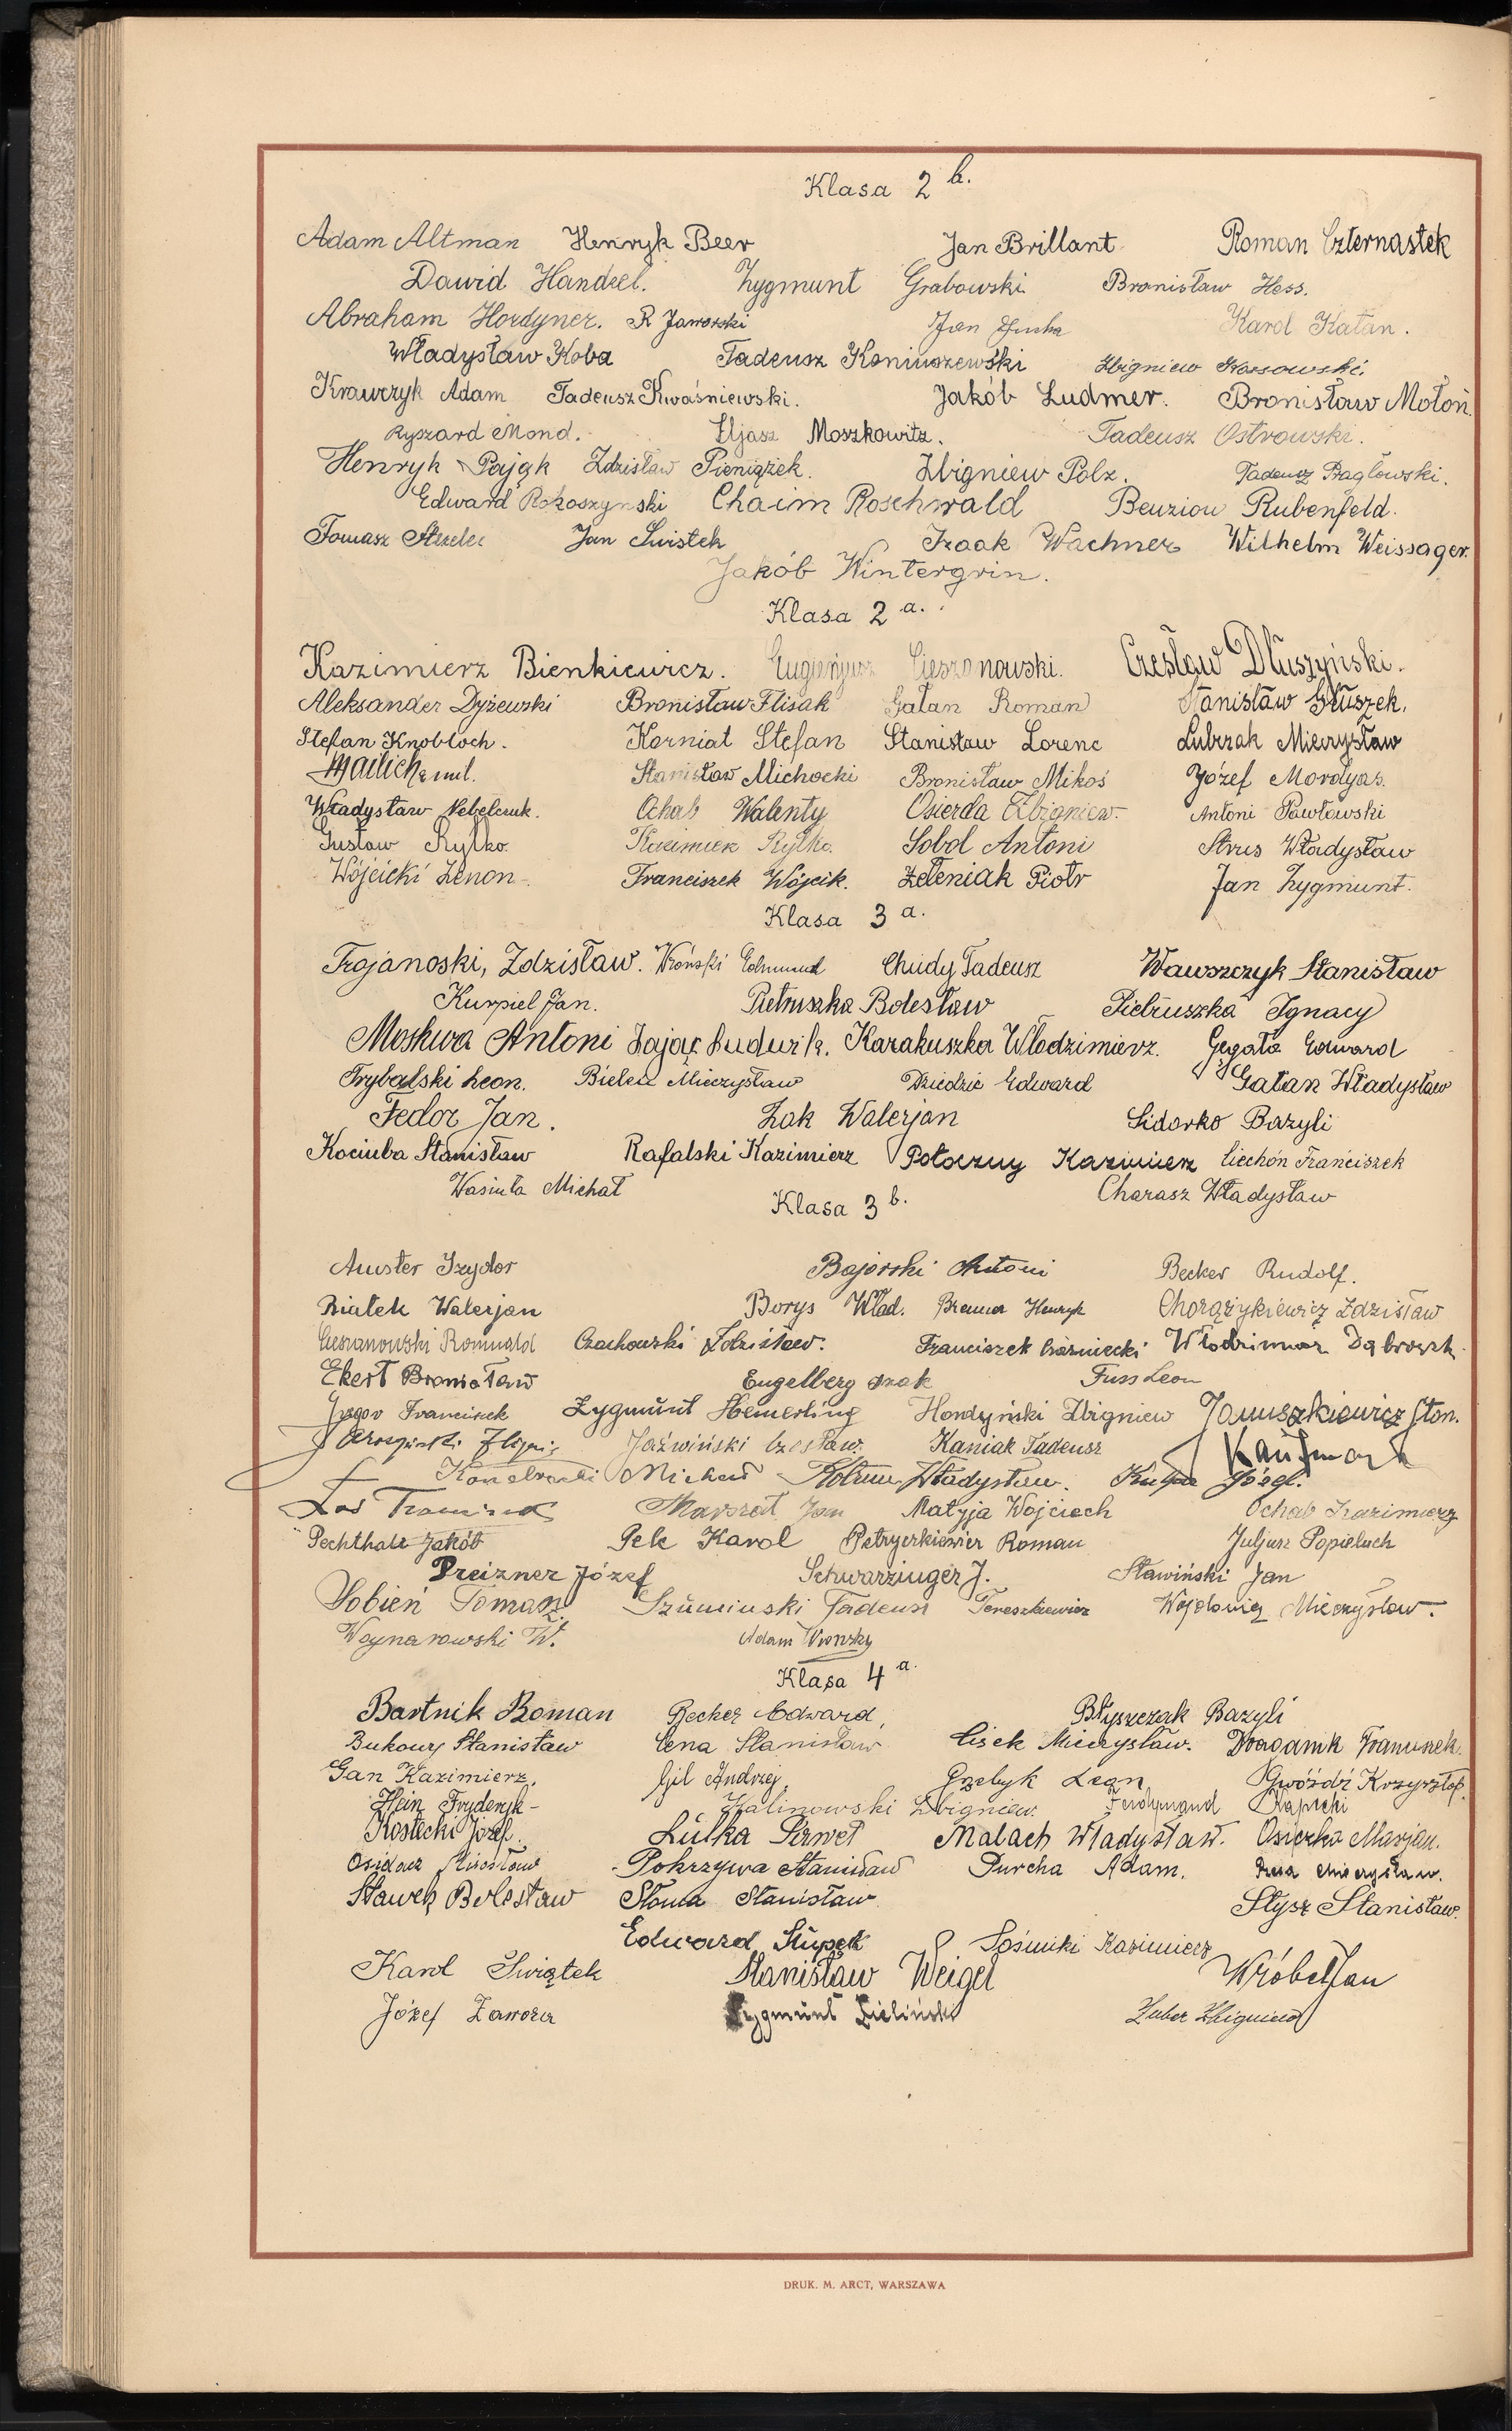 Klasa 2 b.
Adam Altman Henryk Beer Jan Brillant Roman Czternastek
Dawid Handzel. Zygmunt Grabowski Bronisław Hess.
Abraham Hordyner. R Jaworski Jan Karol Katan.
Władysław Koba Tadeusz Koniuszewski Zbigniew Kossowski.
Krawczyk Adam Tadeusz Kwaśniewski. Jakób Ludmer. Bronisław Mołoń.
Ryszard Mond. Eljasz Moszkowitz. Tadeusz Ostrowski.
Henryk Pająk Zdzisław Pieniążek. Zbigniew Polz. Tadeusz Prągłowski.
Edward Rokoszynski Chaim Roschwald Benzion Rubenfeld.
Tomasz Strzelec Jan Świstek Izaak Wachner Wilhelm Weissager.
Jakób Wintergrin.
Klasa 2 a.
Kazimierz Bienkiewicz. Eugenjusz Cieszanowski. Czesław Dłuszyński.
Aleksander Dyżewski Bronisław Flisak Gałan Roman Stanisław Głuszek.
Stefan Knobloch. Korniat Stefan Stanisław Lorenc Lubrzak Mieczysław
Mailich Emil. Stanisław Michocki Bronisław Mikoś Józef Mordyas.
Władysław Nebelczuk. Ochab Walenty Osierda Zbigniew. Antoni Pawłowski
Gustaw Ryłko. Kazimierz Ryłko. Sobol Antoni Strus Władysław
Wójcicki Zenon. Franciszek Wójcik. Zeleniak Piotr Jan Zygmunt.
Klasa 3 a.
Trojanoski, Zdzisław. Wroński Edmund Chudy Tadeusz Wawszczyk Stanisław
Kurpiel Jan. Pietruszka Bolesław Pietruszka Ignacy
Moskwa Antoni Zając Ludwik. Karakuszka Włodzimierz. Gęgała Edward
Trybalski Leon. Bielec Mieczysław Dziedzic Edward Gałan Władysław
Fedor Jan. Żak Walerjan Sidorko Bazyli
Kociuba Stanisław Rafalski Kazimierz Potoczny Kazimierz Ciechón Franciszek
Wasiuta Michał Charasz Władysław
Klasa 3 b.
Auster Izydor Bajorski Antoni Becker Rudolf.
Białek Walerjan Borys Wład. Brenner Henryk Chorążykiewicz Zdzisław
Cieszanowski Romuald Czachowski Zdzisław. Franciszek Włodzimierz
Ekert Bronisław Engelberg Izak Fuss Leon
Franciszek Zygmunt Hemerling Hordyński Zbigniew Januszkiewicz Stan.
Jaźwiński Czesław. Kaniak Tadeusz Kaufmann
Michał Władysław. Kulpa Józef.
Marszał Jan Matyja Wojciech Ochab Kazimierz
Pechthalt Jakób Pelc Karol Petryczkiewicz Roman Juljusz Popieluch
Preizner Józef Schwarzinger J. Sławiński Jan
Sobień Tomasz. Szumiński Tadeusz Tereszkiewicz Wojdowicz Mieczysław.
Wojnarowski W. Adam Wronsky
Klasa 4 a.
Bartnik Roman Becker Edward, Błyszczak Bazyli
Bukowy Stanisław Cena Stanisław Cisek Mieczysław. Draganik Franciszek.
Gan Kazimierz. Gil Andrzej, Grzebyk Leon Gwóźdź Krzysztof.
Hein Fryderyk- Kalinowski Zbigniew. Ferdynand Kaprzki
Kostecki Józef. Lulka Malach Władysław. Osiczka Marjan.
Osidacz Mirosław Pokrzywa Stanisław Purcha Adam. Mieczysław.
Sławek Bolesław Słoma Stanisław Stysz Stanisław.
Edward Słupek Sośnicki Kazimierz
Karol Świątek Stanisław Weigel Wróbel Jan
Józef Zawora Zygmunt Zieliński Zuber Zbigniew
DRUK. M. ARCT, WARSZAWA